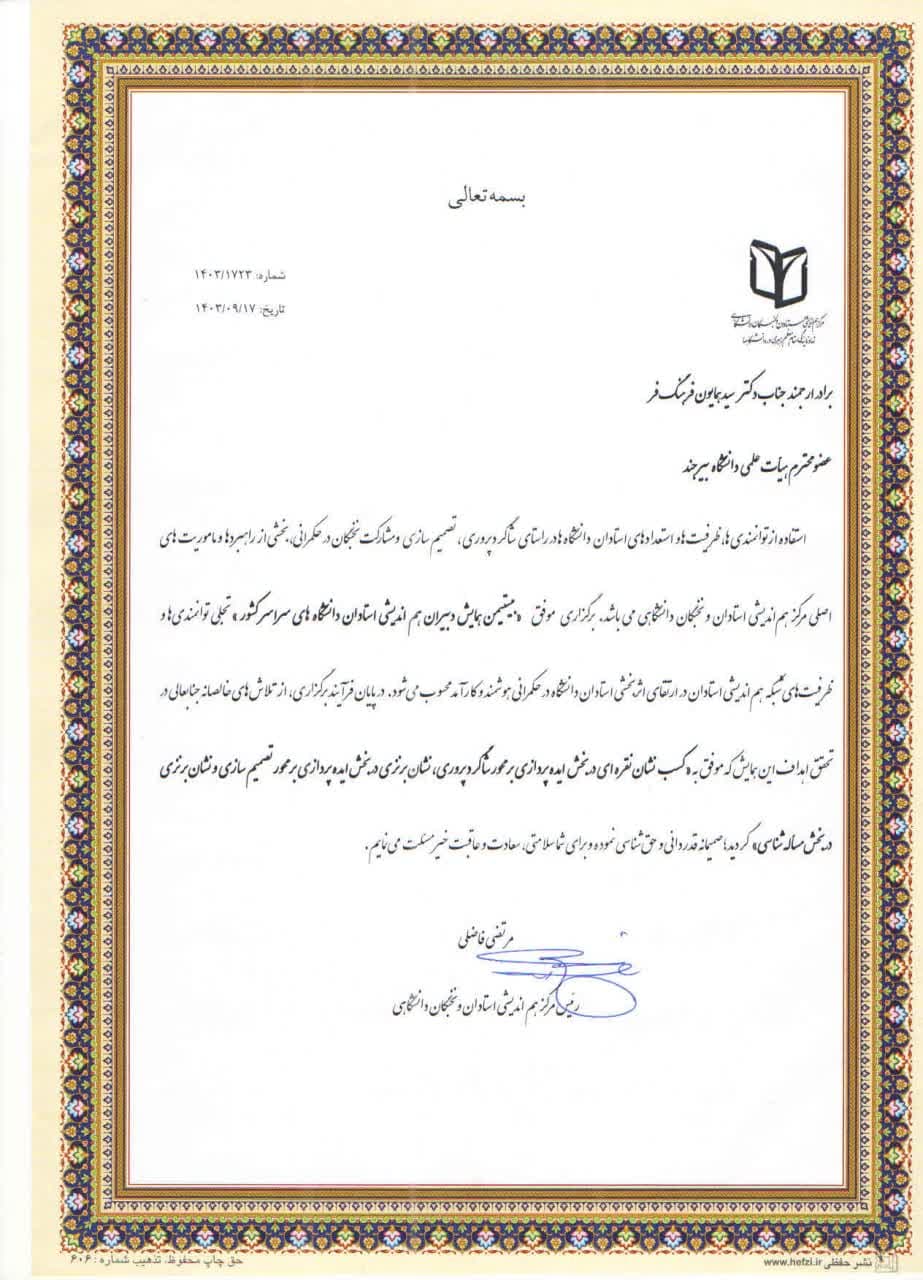 بسمه تعالی
شماره: ۱۴۰۳/۱۷۲۳
تاریخ: ۱۴۰۳/۰۹/۱۷
مرکز هم اندیشی استادان و نخبگان دانشگاهی
نهاد نمایندگی مقام معظم رهبری در دانشگاه‌ها
برادر ارجمند جناب دکتر سید همایون فرهنگ فر
عضو محترم هیأت علمی دانشگاه بیرجند
استفاده از توانمندی ها، ظرفیت ها و استعدادهای استادان دانشگاه ها در راستای شاگرد پروری، تصمیم سازی و مشارکت نخبگان در حکمرانی، بخشی از راهبردها و ماموریت های
اصلی مرکز هم اندیشی استادان و نخبگان دانشگاهی می باشد. برگزاری موفق «بیستمین همایش دبیران هم اندیشی استادان دانشگاه های سراسر کشور» تجلی توانمندی ها و
ظرفیت های شبکه هم اندیشی استادان در ارتقای اثربخشی استادان دانشگاه در حکمرانی هوشمند و کارآمد محسوب می شود. در پایان فرآیند برگزاری، از تلاش های خالصانه جنابعالی در
تحقق اهداف این همایش که موفق به «کسب نشان نقره ای در بخش ایده پردازی بر محور شاگرد پروری، نشان برنزی در بخش ایده پردازی بر محور تصمیم سازی و نشان برنزی
در بخش مساله شناسی» گردید؛ صمیمانه قدردانی و حق شناسی نموده و برای شما سلامتی، سعادت و عاقبت خیر مسئلت می نمایم.
مرتضی فاضلی
رئیس مرکز هم اندیشی استادان و نخبگان دانشگاهی
نشر حفظی www.hefzi.ir
حق چاپ محفوظ، تذهیب شماره: ۶۰۶